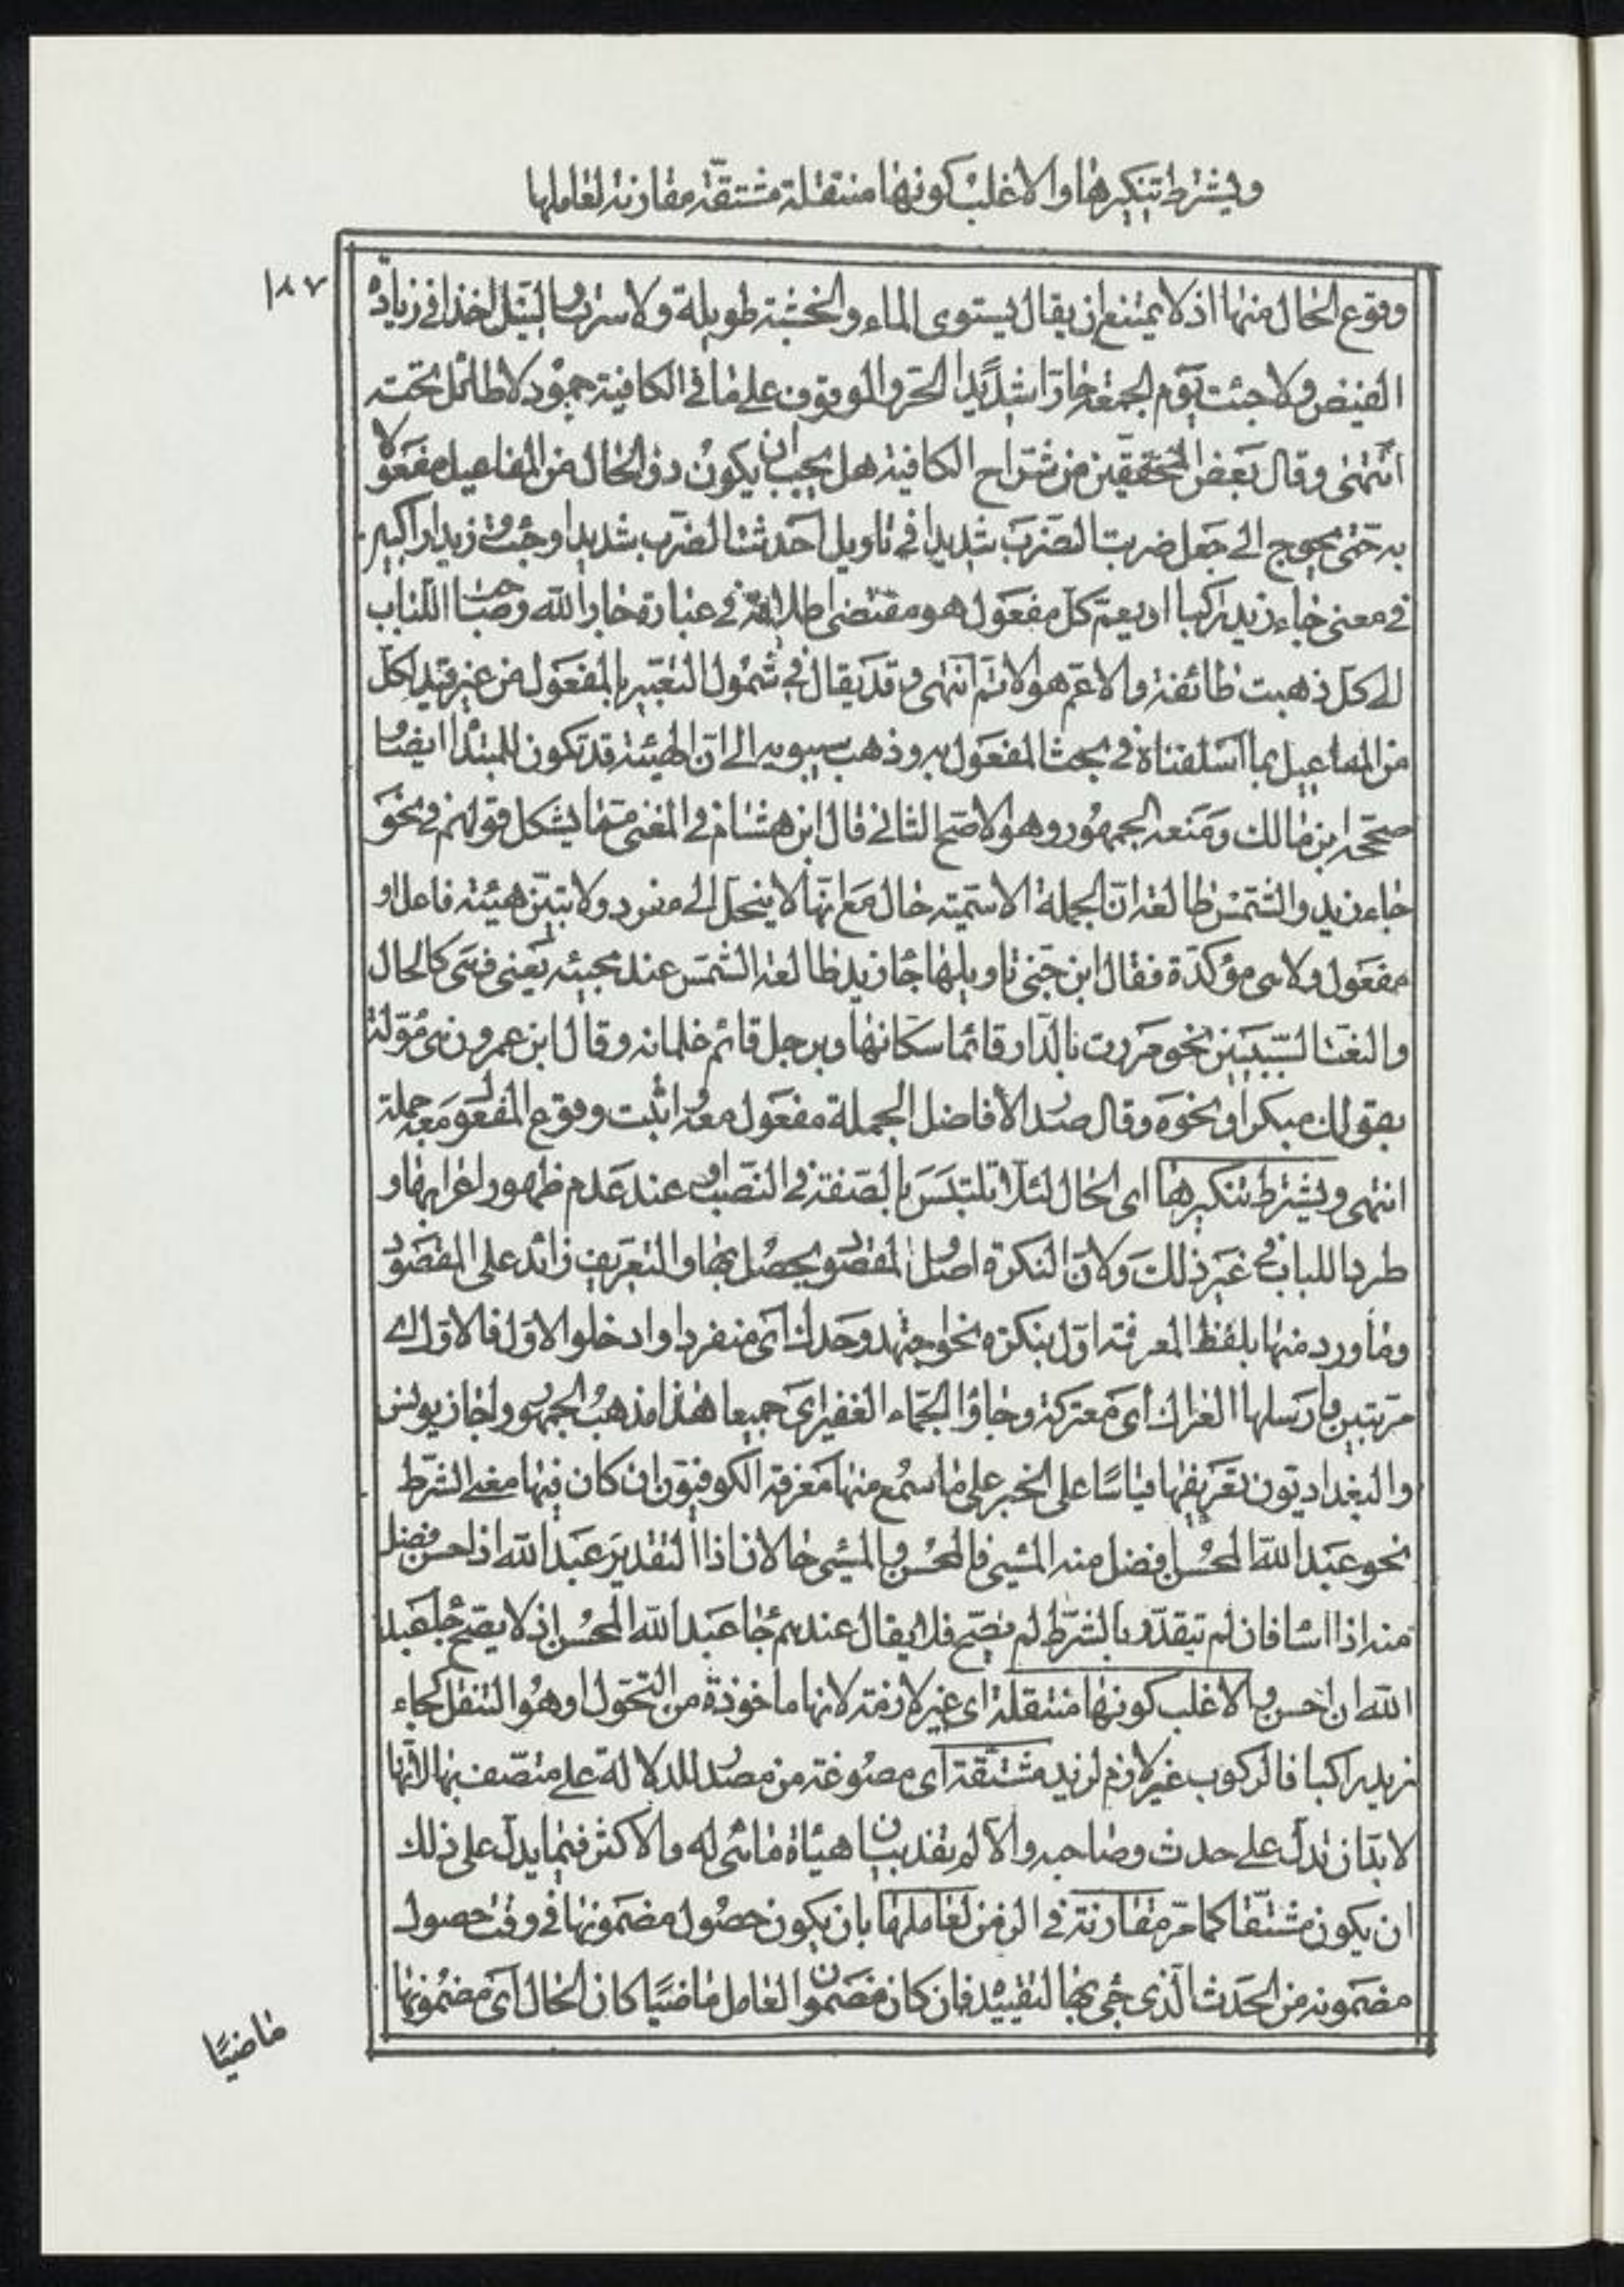 ويشترط تنكيرها والاغلب كونها منتقلة مشتقة مقارنة لعاملها
١٨٧
وقوع الحال منها اذ لا يمتنع ان يقال يستوى الماء والخشبة طويلة ولا سرت والنيل اخذا فى زيادة
الفيض ولا جئت يوم الجمعة حارا شديد الحر والوقوف على ما فى الكافية جمود لا طائل تحته
انتهى وقال بعض المحققين من شراح الكافية هل يجب ان يكون ذو الحال من المفاعيل مفعولا
به حتى يحوج الى جعل ضربت الضرب شديدا فى تاويل احدثت الضرب شديدا وجئت وزيدا راكبا
فى معنى جاء زيد راكبا او يعم كل مفعول هو مقتضى اطلاقه فى عبارة جار الله وصاحب اللباب
الى كل ذهبت طائفة والاعم هو الاتم انتهى وقد يقال فى شمول التعبير بالمفعول من غير قيد لكل
من المفاعيل بما اسلفناه فى بحث المفعول به وذهب سيبويه الى ان الهيئة قد تكون للمبتدا ايضا و
صححه ابن مالك ومنعه الجمهور وهو الاصح الثانى قال ابن هشام فى المغنى مما يشكل قولهم فى نحو
جاء زيد والشمس طالعة ان الجملة الاسمية حال مع انها لا ينحل الى مفرد ولا تبين هيئة فاعل او
مفعول ولا هى مؤكدة فقال ابن جنى تاويلها جاء زيد طالعة الشمس عند مجيئه يعنى فهى كالحال
والنعت السببيين نحو مررت بالدار قائما سكانها وبرجل قائم غلمانه وقال ابن عمرون هى مؤولة
بقولك مبكرا ونحوه وقال صدر الافاضل الجملة مفعول معه واثبت وقوع المفعول معه جملة
انتهى ويشترط تنكيرها اى الحال لئلا تلتبس بالصفة فى النصب وعند عدم ظهور اعرابها و
طردا للباب فى غير ذلك ولان النكرة اصل والمقصود يحصل بها والتعريف زائد على المقصود
وما ورد منها بلفظ المعرفة اول بنكرة نحو اجتهد وحدك اى منفردا وادخلوا الاول فالاول اى
مرتبين وارسلها العراك اى معتركة وجاؤا الجماء الغفير اى جميعا هذا مذهب الجمهور واجاز يونس
والبغداديون تعريفها قياسا على الخبر على ما سمع منها معرفة الكوفيون ان كان فيها معنى الشرط
نحو عبد الله المحسن افضل منه المسيئ فالمحسن والمسيئ حالان اذا التقدير عبد الله اذا احسن افضل
منه اذا اساء فان لم تتقدر بالشرط لم يصح فلا يقال عندهم جاء عبد الله المحسن اذ لا يصح جاء عبد
الله ان احسن والاغلب كونها منتقلة اى غير لازمة لانها ماخوذة من التحول او هو التنقل كجاء
زيد راكبا فالركوب غير لازم لزيد مشتقة اى مصوغة من مصدر للدلالة على متصف بها لانها
لا بد ان تدل على حدث وصاحبه والا لم يفد بيان هيأة ما هى له والاكثر فيما يدل على ذلك
ان يكون مشتقا كما مر مقارنة فى الزمن لعاملها بان يكون حصول مضمونها فى وقت حصول
مضمونه من الحدث الذى جئ بها لتقييده فان كان مضمون العامل ماضيا كان الحال اى مضمونها
ماضيا